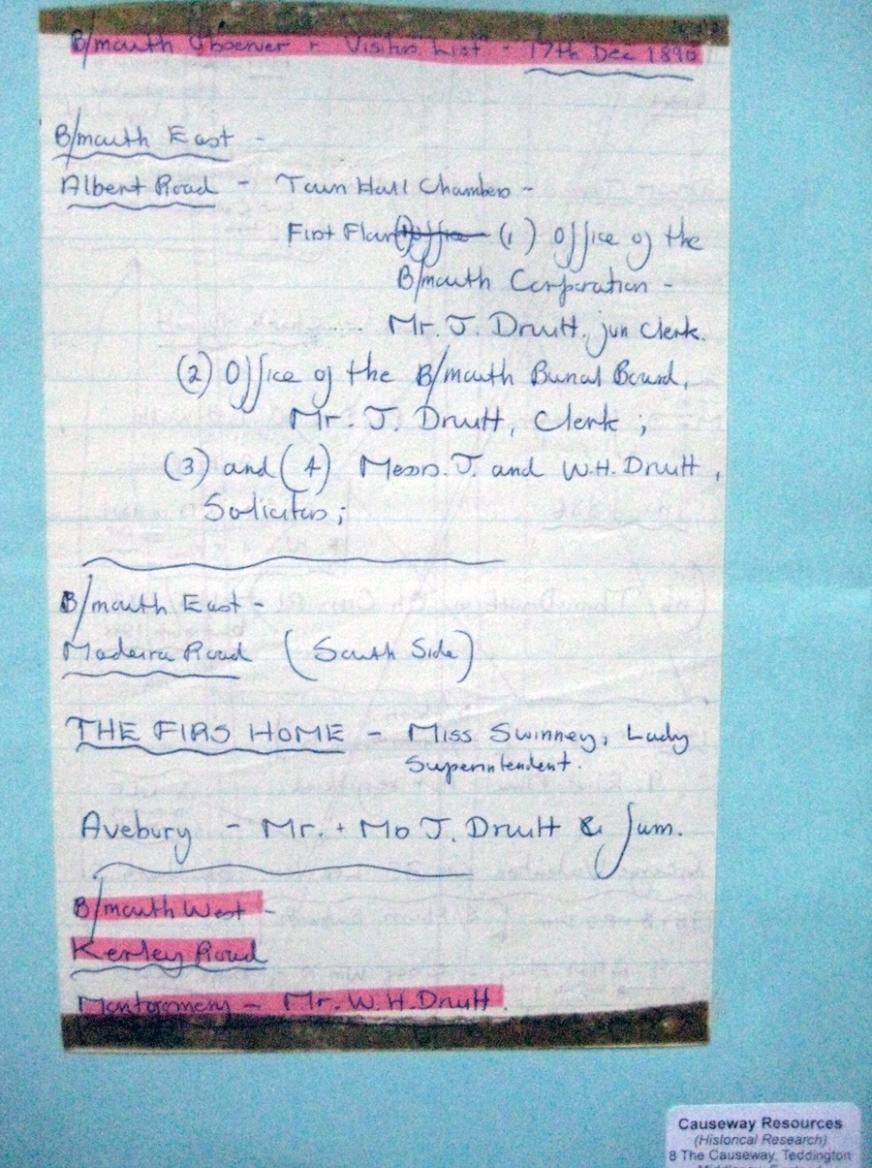 B/mouth Observer + Visitors List - 17th Dec 1890
B/mouth East -
Albert Road - Town Hall Chambers -
First Floor (1) Office (1) Office of the
B/mouth Corporation -
Mr. J. Druitt. jun Clerk.
(2) Office of the B/mouth Burial Board,
Mr. J. Druitt, Clerk ;
(3) and (4) Messrs. J. and W.H. Druitt,
Solicitors ;
B/mouth East -
Madeira Road (South Side)
THE FIRS HOME - Miss Swinney, Lady
Superintendent.
Avebury - Mr. + Mrs J. Druitt & fam.
B/mouth West -
Kerley Road
Montgomery - Mr. W.H. Druitt.
Causeway Resources
(Historical Research)
8 The Causeway, Teddington